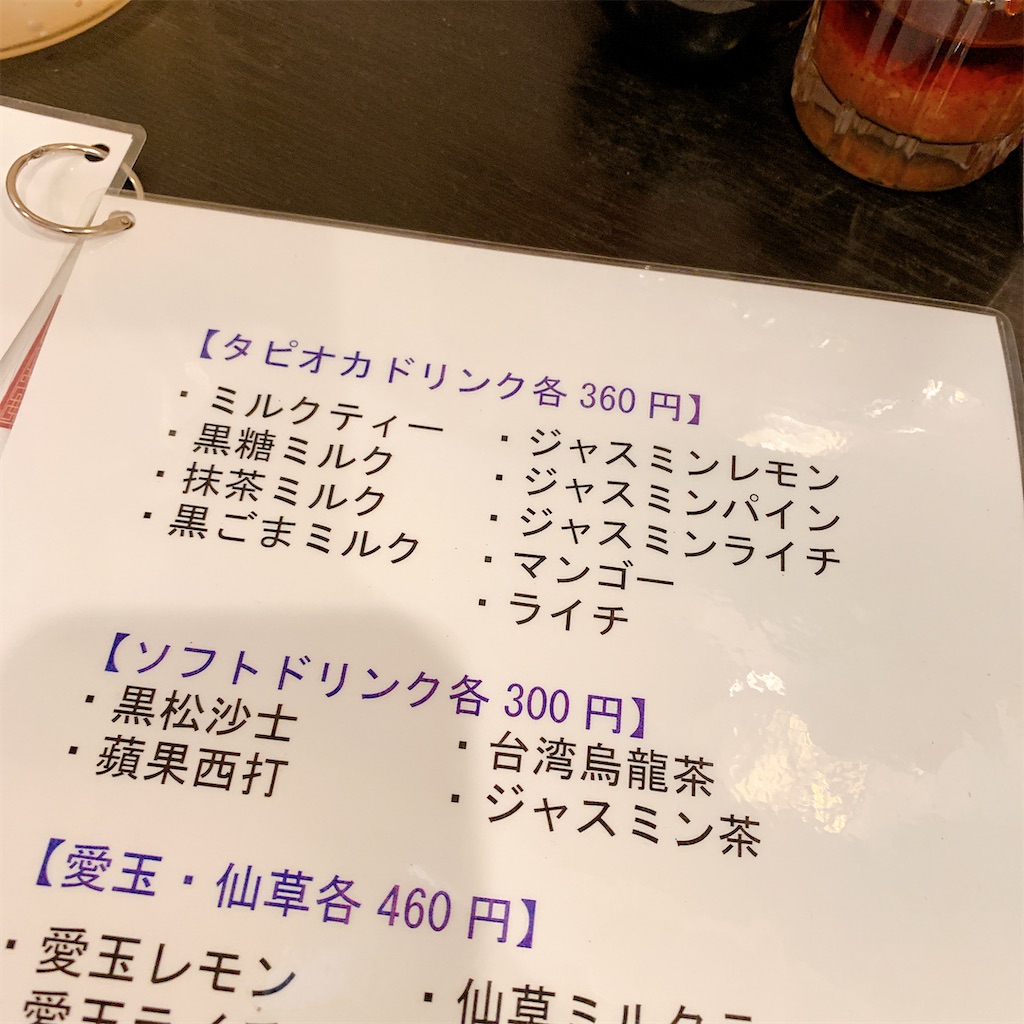 【タピオカドリンク各 360 円】
・ミルクティー
・黒糖ミルク
・抹茶ミルク
・黒ごまミルク
・ジャスミンレモン
・ジャスミンパイン
・ジャスミンライチ
・マンゴー
・ライチ
【ソフトドリンク各 300 円】
・黒松沙士
・蘋果西打
・台湾烏龍茶
・ジャスミン茶
【愛玉・仙草各 460 円】
・愛玉レモン
愛玉ライチ
・仙草ミルク